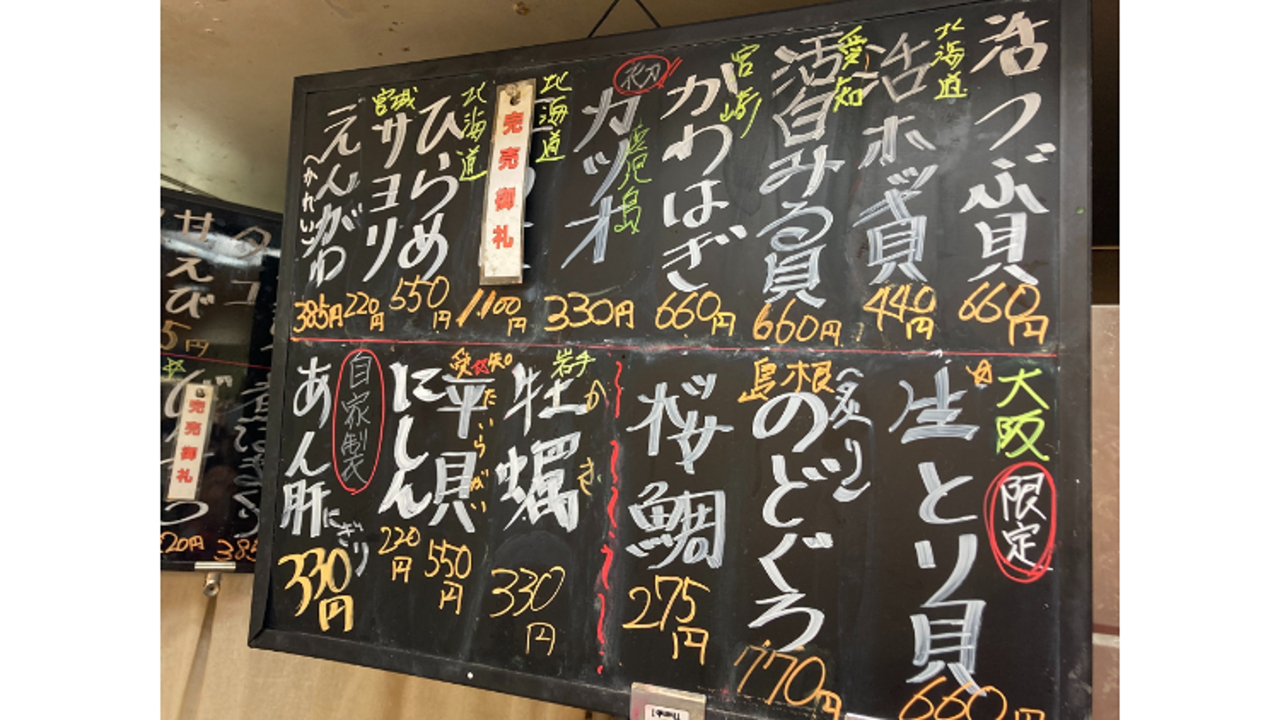 北海道
活つぶ貝
660円
愛知
活ホッキ貝
440円
活白みる貝
660円
宮崎
かわはぎ
660円
初
鹿児島
カツオ
330円
北海道
完売御礼
1,100円
北海道
ひらめ
550円
宮城
サヨリ
220円
えんがわ
(かれい)
385円
大阪
限定
生とり貝
660円
島根
(炙り)
のどぐろ
770円
桜鯛
275円
岩手
かき
牡蠣
330円
愛知
たいらがい
平貝
550円
にしん
220円
自家製
あん肝にぎり
330円
えび
5円
完売御礼
220円